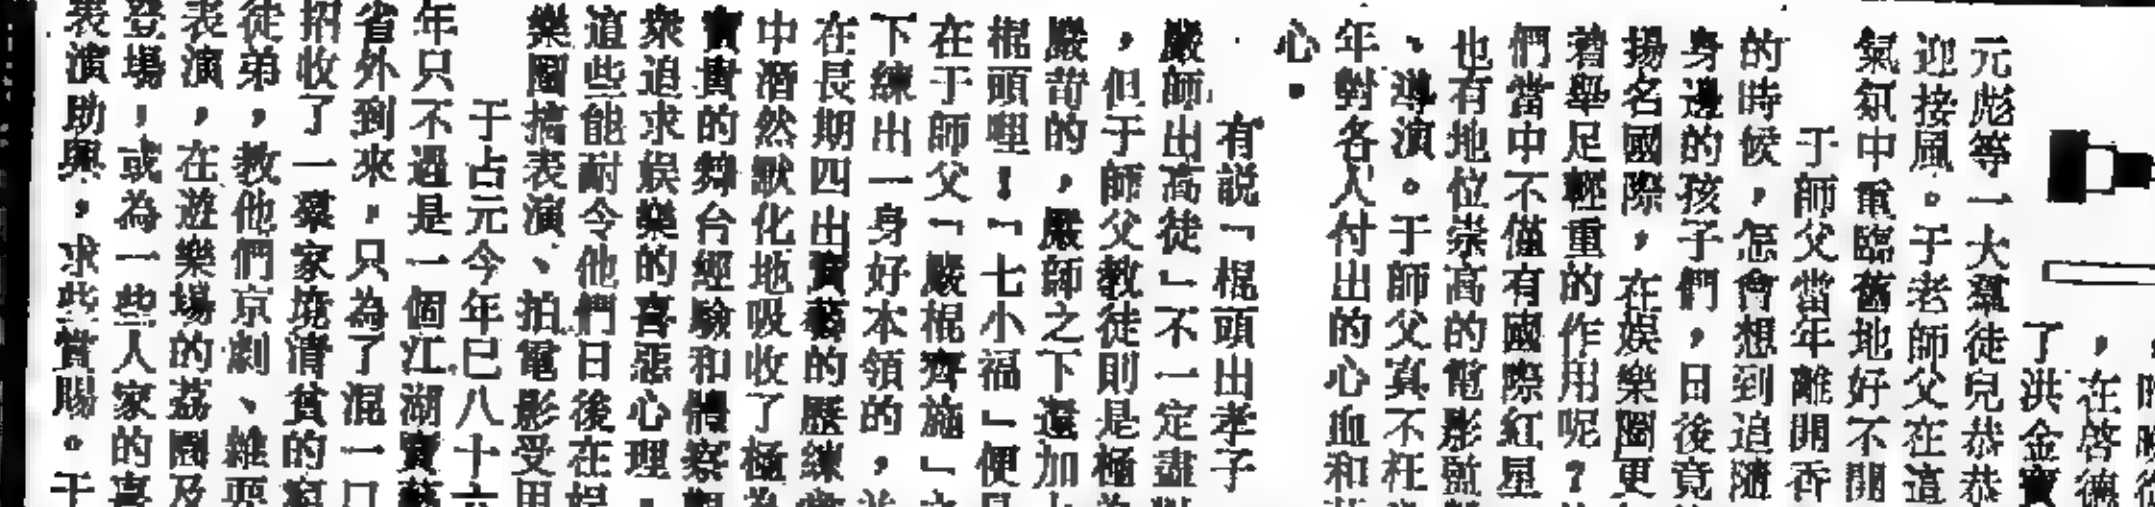 ，在啓德
了洪金寶
元彪等一大羣徒兒恭恭
迎接風。于老師父在這
氣氛中重臨舊地好不開
于師父當年離開香
的時候，怎會想到追隨
身邊的孩子們，日後竟
揚名國際，在娛樂圈更
着舉足輕重的作用呢？
們當中不僅有國際紅星
也有地位崇高的電影監
、導演。于師父真不枉
年對各人付出的心血和
心。
有說「棍頭出孝子
嚴師出高徒」不一定盡對
，但于師父教徒則是極為
嚴苛的，嚴師之下還加上
棍頭哩！「七小福」便是
在于師父「嚴棍齊施」之
下練出一身好本領的，並
在長期四出賣藝的歷練當
中潛然默化地吸收了極為
寶貴的舞台經驗和體察觀
衆追求娛樂的喜惡心理，
這些能耐令他們日後在娛
樂圈搞表演、拍電影受用
于占元今年已八十六
年只不過是一個江湖賣藝
省外到來，只為了混一口
招收了一羣家境清貧的窮
徒弟，教他們京劇、雜耍
表演，在遊樂場的荔園及
登場，或為一些人家的喜
表演助興，求些賞賜。于